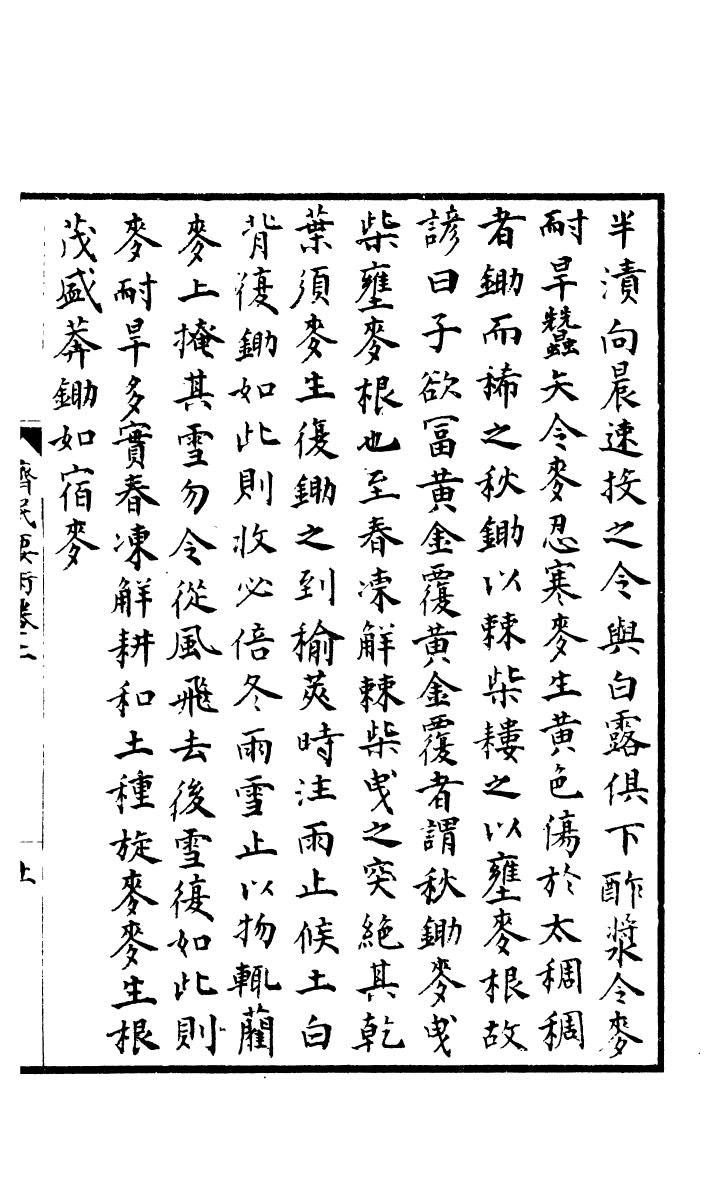 半漬向晨速投之令與白露俱下酢漿令麥
耐旱蠶矢令麥忍寒麥生黃色傷於太稠稠
者鋤而稀之秋鋤以棘柴耬之以壅麥根故
諺曰子欲冨黃金覆黃金覆者謂秋鋤麥曵
柴壅麥根也至春凍解棘柴曵之突絶其乾
葉須麥生復鋤之到榆莢時注雨止候土白
背復鋤如此則收必倍冬雨雪止以物輒藺
麥上掩其雪勿令從風飛去後雪復如此則
麥耐旱多實春凍解耕和土種旋麥麥生根
茂盛莾鋤如宿麥
齊民要術卷二